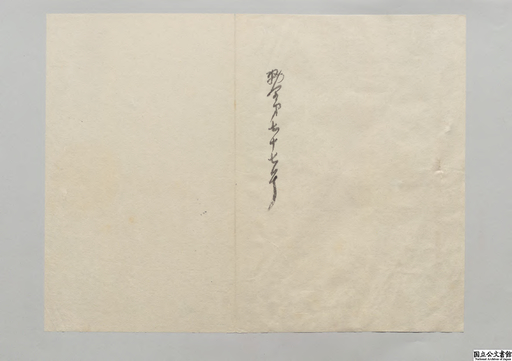 勅令第七十七号
国立公文書館
National Archives of Japan